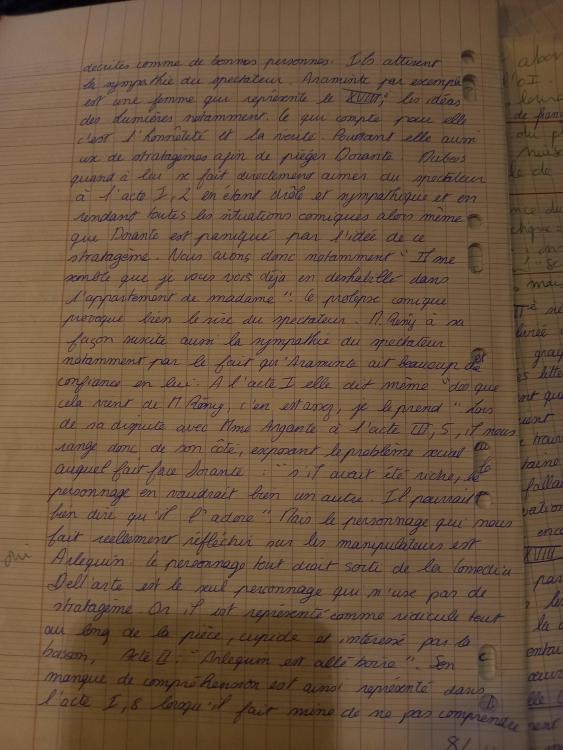 décrites comme de bonnes personnes. Ils attisent
la sympathie du spectateur. Araminte par exemple
est une femme qui représente le XVIII, les idées
des lumières notamment. Ce qui compte pour elle
c'est l'honnêteté et la vérité. Pourtant elle aussi
use de stratagèmes afin de piéger Dorante. Dubois
quand à lui se fait directement aimer du spectateur
à l'acte I, 2 en étant drôle et sympathique et en
rendant toutes les situations comiques alors même
que Dorante est paniqué par l'idée de ce
stratagème. Nous avons donc notamment "Il me
semble que je vous vois déjà en deshabillé dans
l'appartement de madame". Ce comique
provoque bien le rire du spectateur. M. Rémy à sa
façon suscite aussi la sympathie du spectateur
notamment par le fait qu'Araminte ait beaucoup de
confiance en lui. A l'acte I elle dit même "dès que
cela vient de M. Rémy, c'en est assez, je le prend" Lors
de sa dispute avec Mme Argante à l'acte III, 5, il nous
range donc de son côté, exposant le problème social
auquel fait face Dorante : "s'il avait été riche, le
personnage en vaudrait bien un autre. Il pourrait
bien dire qu'il l'adore". Mais le personnage qui nous
fait réellement réfléchir sur les manipulateurs est
oui
Arlequin. Le personnage tout droit sorti de la Comedia
Dell'arte est le seul personnage qui n'use pas de
stratagème. Or il est représenté comme ridicule tout
au long de la pièce, cupide et intéressé par la
boisson, Acte II. "Arlequin est allé boire". Son
manque de compréhension est ainsi représenté dans
l'acte I, 8 lorsqu'il fait mine de ne pas comprendre
8/